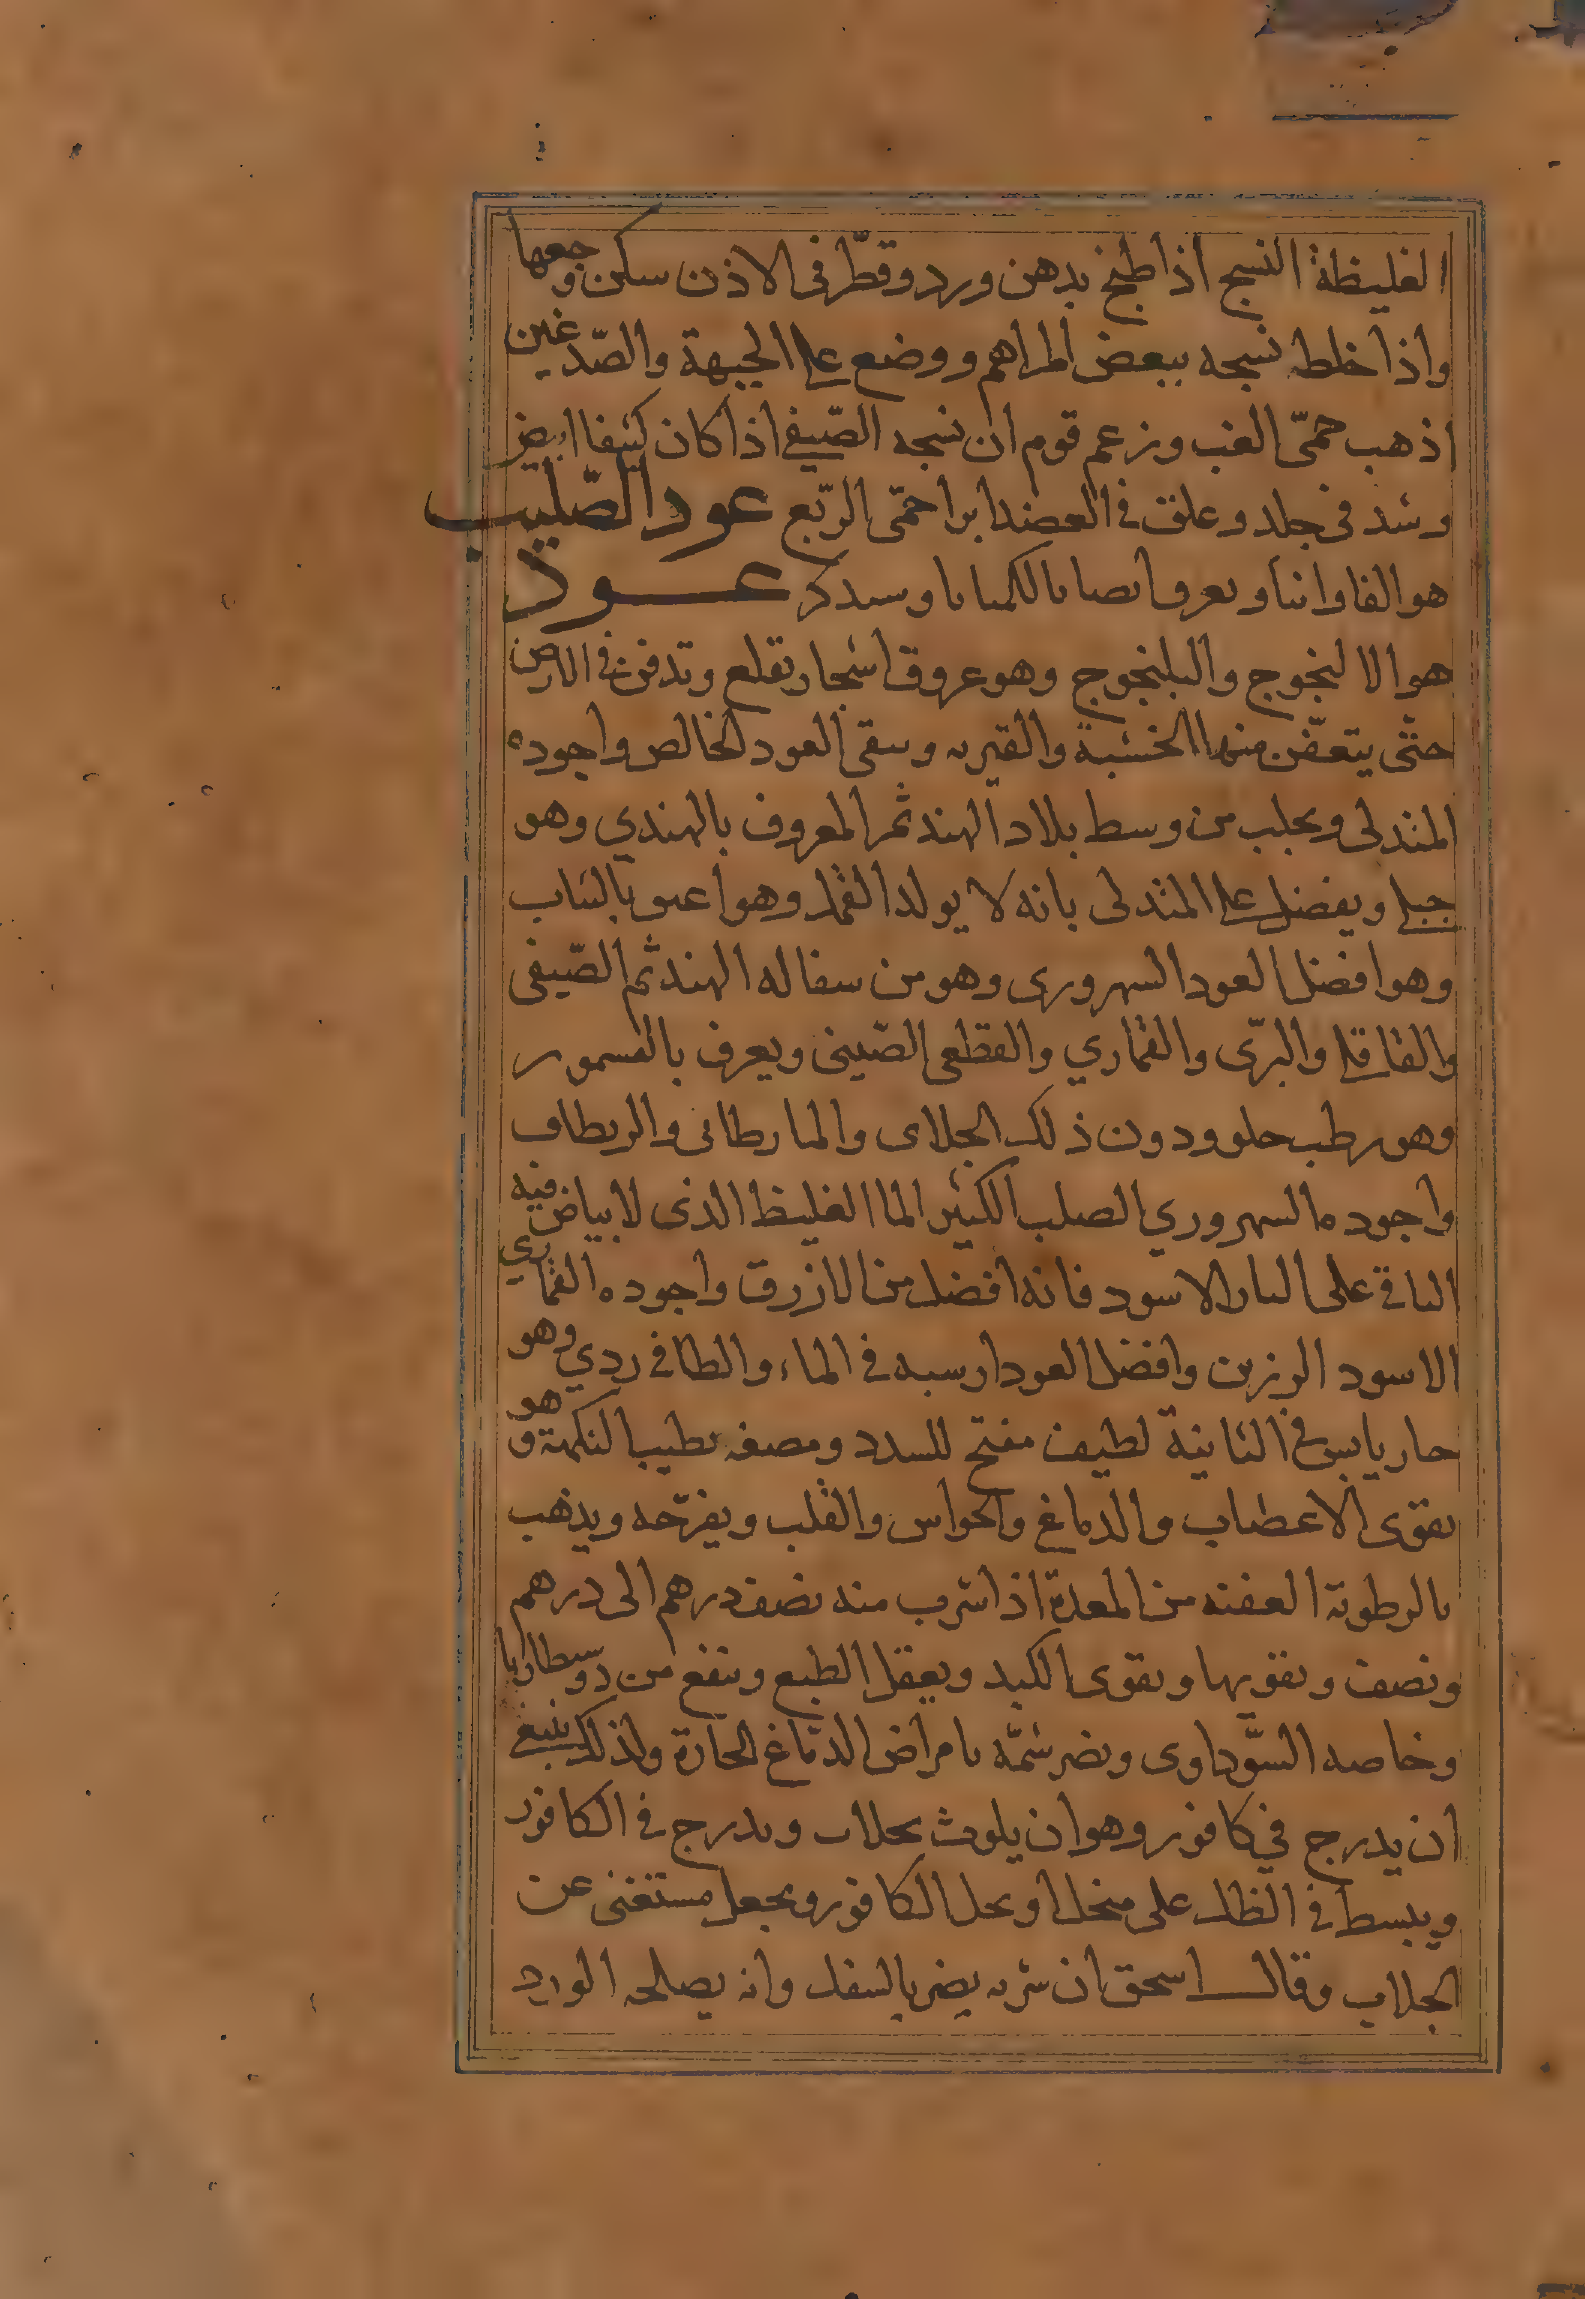 الغليظة النسج اذا طبخ بدهن ورد وقطّر فى الاذن سكن وجعها
واذا خلط نسجه ببعض المراهم ووضع على الجبهة والصّدغين
اذهب حمّى الغب وزعم قوم ان نسجه الصّيفى اذا كان كثيفا ابيض
وشد فى جلد وعلق فى العضد ابرا حمّى الرّبع عود الصّليب
هو الفاوانيا ويعرف ايضا بالكهيانا وسيذكر عــود
هو الالنجوج والبلنجوج وهو عروق اشجار تقلع وتدفن فى الارض
حتّى يتعفّن منها الخشبة والقشريه ويبقى العود الخالص واجوده
المندلى ويجلب من وسط بلاد الهند ثم المعروف بالهندي وهو
جبلى ويفضل على المندلى بانه لا يولد القمل وهو اعبق بالثياب
وهو افضل العود السهرورى وهو من سفاله الهند ثم الصّيفى
والقاقلى والبرّى والقمارى والقطعى الصّينى ويعرف بالقسمور
وهو رطب حلو ودون ذلك الجلاى والمارطانى والربطاف
واجوده السهروري الصلب الكثير الما الغليظ الذى لا بياض فيه
الباقى على النار الاسود فانه افضل من الازرق واجوده القماري
الاسود الرزين وافضل العود ارسبه فى الماء والطافى ردي وهو
حار يابس فى الثانية لطيف مفتح للسدد ومضغه يطيب النكهة وهو
يقوى الاعصاب والدماغ والحواس والقلب ويفرّحه ويذهب
بالرطوبة العفنه من المعدة اذا شرب منه نصف درهم الى درهم
ونصف ويقويها ويقوى الكبد ويعقل الطبع وينفع من دوسطاريا
وخاصه السّوداوى ويضر شمّه بامراض الدماغ الحارة ولذلك ينبغى
ان يدرج فى كافور وهو ان يلوث بجلاب ويدرج فى الكافور
ويبسط فى الظل على منخل او يحل الكافور ويجعل مستغنى عن
الجلاب وقال اسحق ان شربه يضر بالسفل وانه يصلحه الورد